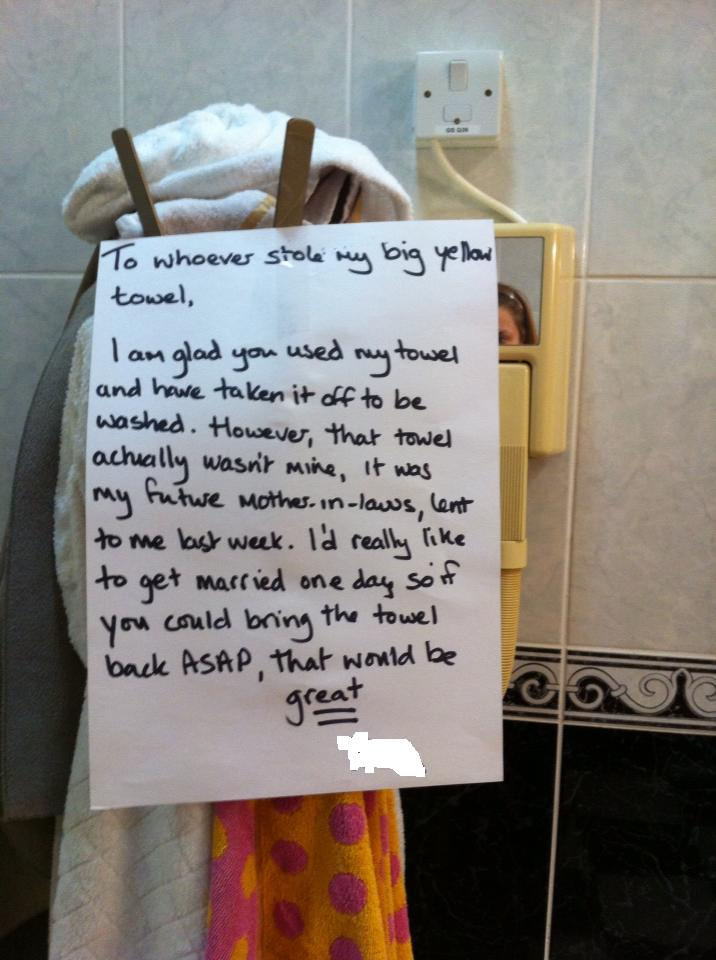 To whoever stole my big yellow
towel,
I am glad you used my towel
and have taken it off to be
washed. However, that towel
actually wasn't mine, it was
my future Mother-in-laws, lent
to me last week. I'd really like
to get married one day so if
you could bring the towel
back ASAP, that would be
great